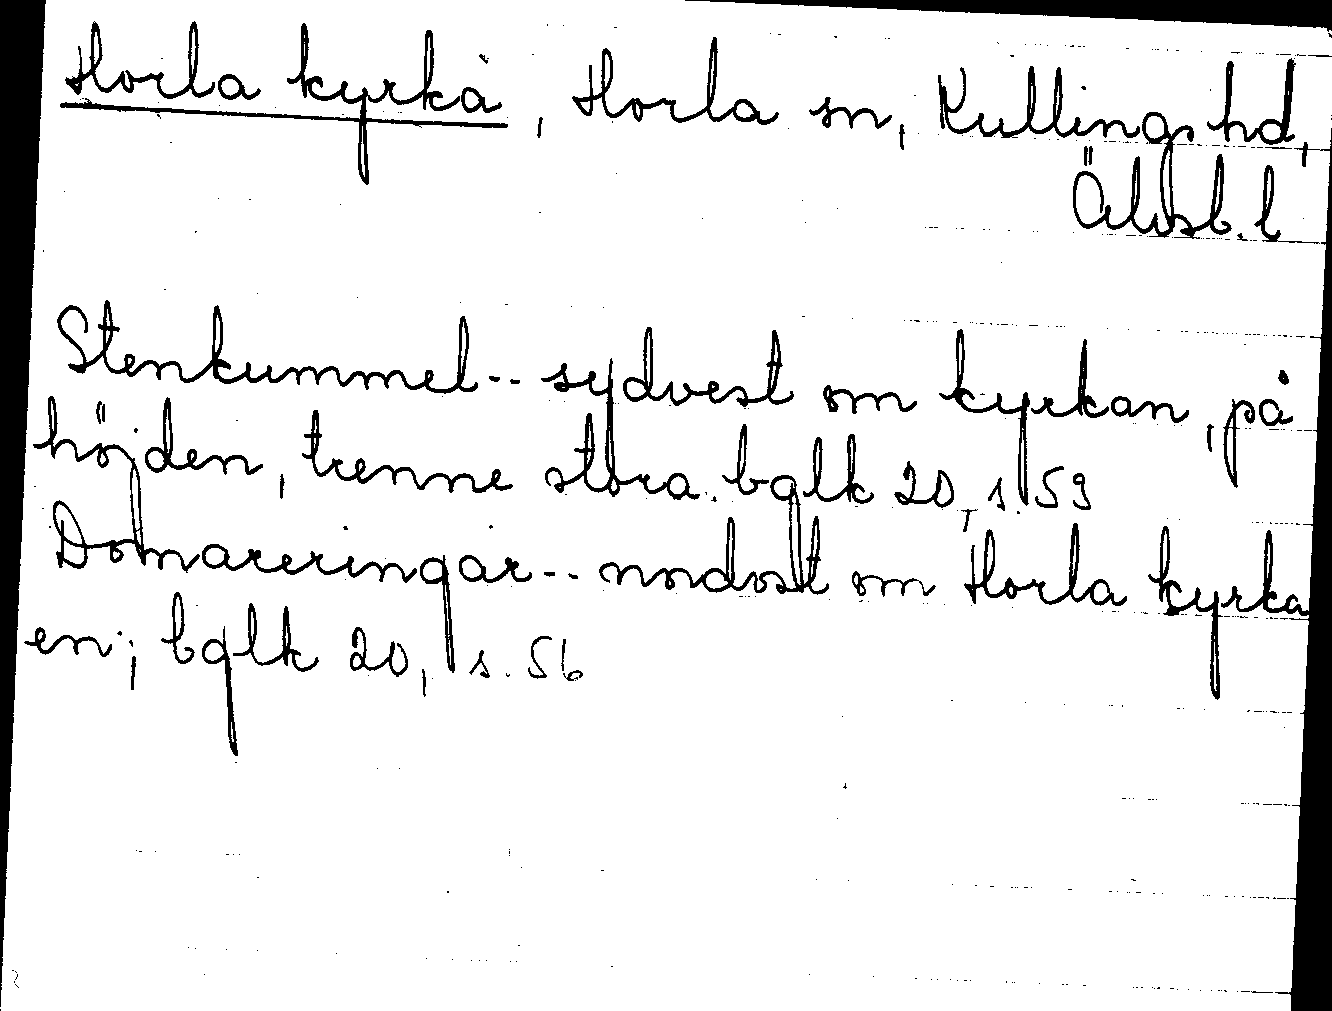 Horla kyrka, Horla sn, Kullings hd,
Älvsb. l
Stenkummel -- sydvest om kyrkan, på
höjden, trenne stora. bglk 20, s. 59
Domareringar -- nordost om Horla kyrka
en; bglk 20, s. 56